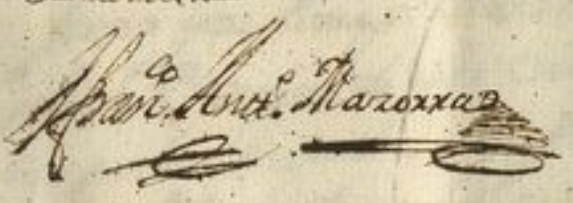 Fran.co Ant.o Marorra